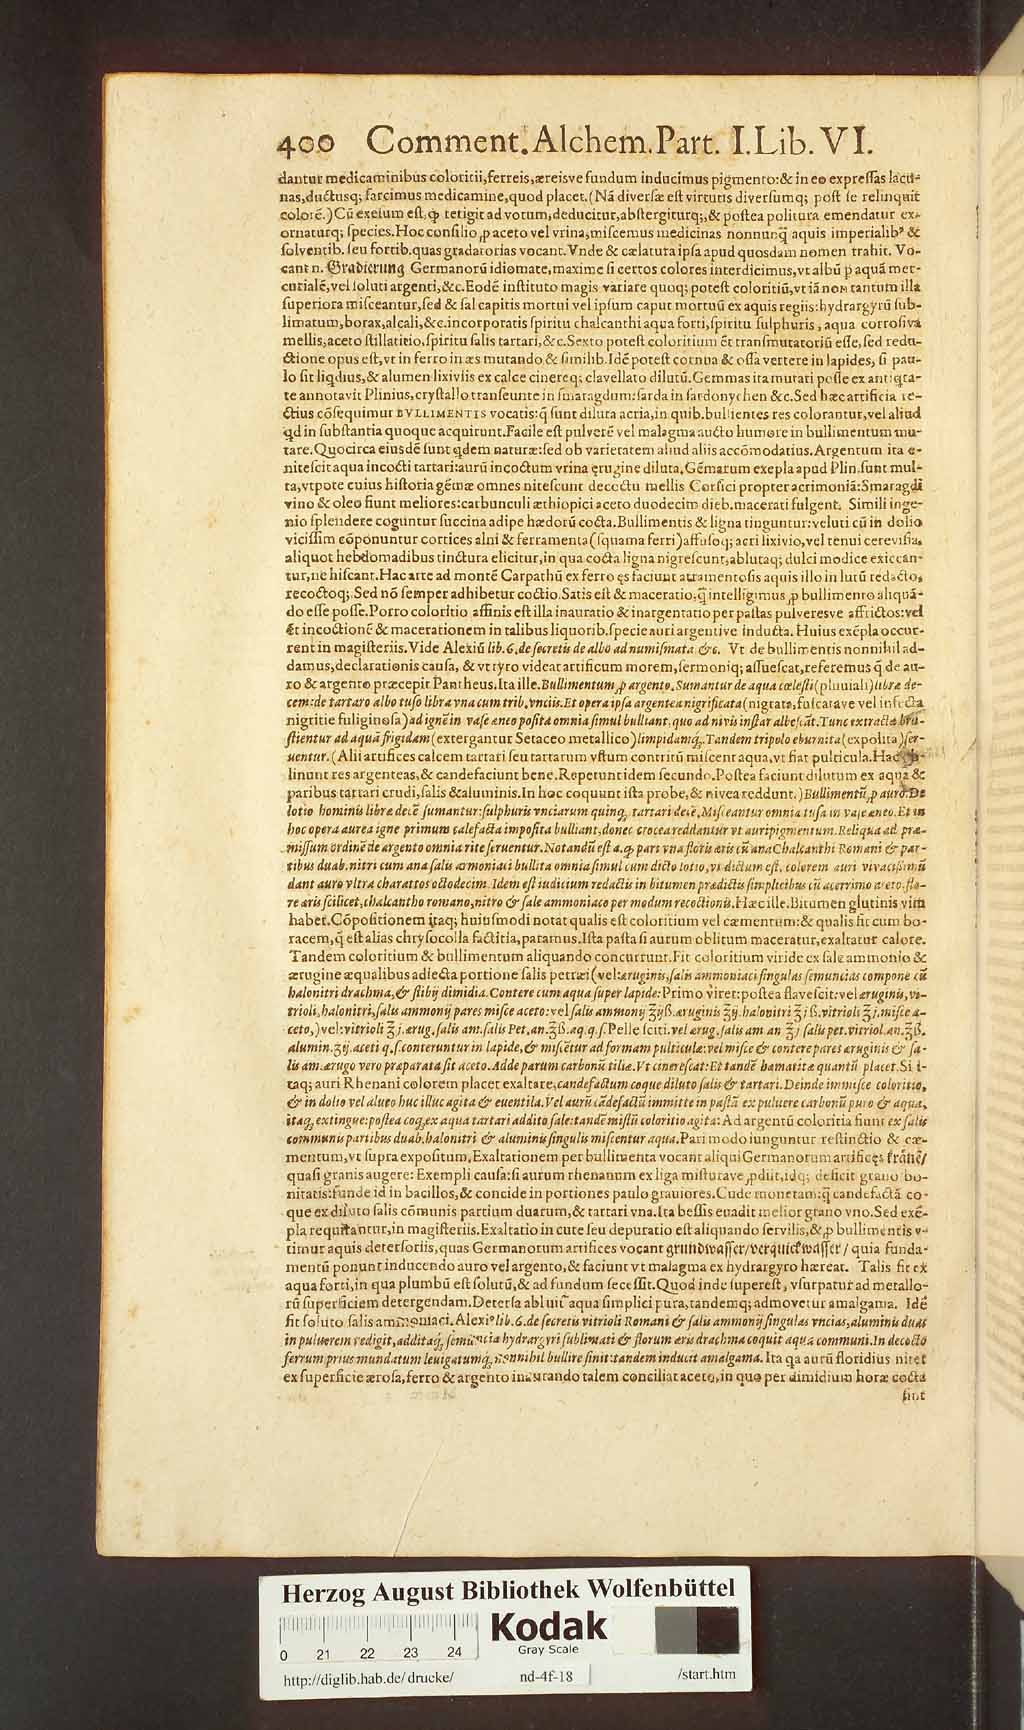 400 Comment. Alchem. Part. I. Lib. VI.
dantur medicaminibus coloritii, ferreis, æreisve fundum inducimus pigmento: & in eo expreſſas lacu-
nas, ductusq; farcimus medicamine, quod placet. (Nā diverſæ eſt virtutis diverſumq; poſt ſe relinquit
colorē.) Cū exeſum eſt, ꝙ tetigit ad votum, deducitur, abſtergiturq;, & poſtea politura emendatur ex-
ornaturq; ſpecies. Hoc conſilio, ꝓ aceto vel vrina, miſcemus medicinas nonnunq̄ aquis imperialibꝰ &
ſolventib. ſeu fortib. quas gradatorias vocant. Vnde & cælatura ipſa apud quosdam nomen trahit. Vo-
cant n. Gradierung Germanorū idiomate, maxime ſi certos colores interdicimus, vt albū ꝑ aquā mer-
curialē, vel ſoluti argenti, &c. Eodē inſtituto magis variare quoq; poteſt coloritiū, vt iā non tantum illa
ſuperiora miſceantur, ſed & ſal capitis mortui vel ipſum caput mortuū ex aquis regiis: hydrargyrū ſub-
limatum, borax, alcali, &c. incorporatis ſpiritu chalcanthi aqua forti, ſpiritu ſulphuris, aqua corroſiva
mellis, aceto ſtillatitio, ſpiritu ſalis tartari, &c. Sexto poteſt coloritium ēt tranſmutatoriū eſſe, ſed redu-
ctione opus eſt, vt in ferro in æs mutando & ſimilib. Idē poteſt cornua & oſſa vertere in lapides, ſi pau-
lo ſit liq̇dius, & alumen lixiviis ex calce cinereq; clavellato dilutū. Gemmas ita mutari poſſe ex antiq̇ta-
te annotavit Plinius, cryſtallo tranſeunte in ſmaragdum: ſarda in ſardonychen &c. Sed hæc artificia re-
ctius cōſequimur BVLLIMENTIS vocatis: q̄ ſunt diluta acria, in quib. bullientes res colorantur, vel aliud
q̇d in ſubſtantia quoque acquirunt. Facile eſt pulverē vel malagma aucto humore in bullimentum mu-
tare. Quocirca eiusdē ſunt q̇dem naturæ: ſed ob varietatem aliud aliis accōmodatius. Argentum ita e-
niteſcit aqua incocti tartari: aurū incoctum vrina ęrugine diluta. Gēmarum exēpla apud Plin. ſunt mul-
ta, vtpote cuius hiſtoria gēmæ omnes niteſcunt decoctu mellis Corſici propter acrimoniā: Smaragdi
vino & oleo fiunt meliores: carbunculi æthiopici aceto duodecim dieb. macerati fulgent. Simili inge-
nio ſplendere coguntur ſuccina adipe hædorū cocta. Bullimentis & ligna tinguntur: veluti cū in dolio
viciſſim cōponuntur cortices alni & ferramenta (ſquama ferri) affuſoq; acri lixivio, vel tenui cereviſia,
aliquot hebdomadibus tinctura elicitur, in qua cocta ligna nigreſcunt, ablutaq; dulci modice exiccan-
tur, ne hiſcant. Hac arte ad montē Carpathū ex ferro ęs faciunt atramentoſis aquis illo in lutū redacto,
recoctoq;. Sed nō ſemper adhibetur coctio. Satis eſt & maceratio, q̄ intelligimus ꝓ bullimento aliquā-
do eſſe poſſe. Porro coloritio affinis eſt illa inauratio & inargentatio per paſtas pulveresve affrictos: vel
ēt incoctionē & macerationem in talibus liquorib. ſpecie auri argentive inducta. Huius exēpla occur-
rent in magiſteriis. Vide Alexiū lib. 6. de ſecretis de albo ad numiſmata &c. Vt de bullimentis nonnihil ad-
damus, declarationis cauſa, & vt tyro videat artificum morem, ſermoniq; aſſueſcat, referemus q̄ de au-
ro & argento præcepit Pantheus. Ita ille. Bullimentum ꝓ argento. Sumantur de aqua cœleſti (pluuiali) libræ de-
cem: de tartaro albo tuſo libra vna cum trib. vnciis. Et opera ipſa argentea nigrificata (nigrata, fuſcata ve vel infecta
nigritie fuliginoſa) ad ignē in vaſe æneo poſita omnia ſimul bulliant, quo ad nivis inſtar albeſcāt. Tunc extracta bru-
ſtientur ad aquā frigidam (extergantur Setaceo metallico) limpidamq;. Tandem tripolo eburnita (expolita) ſer-
uentur. (Alii artifices calcem tartari ſeu tartarum vſtum contritū miſcent aqua, vt fiat pulticula. Hac
linunt res argenteas, & candefaciunt bene. Repetunt idem ſecundo. Poſtea faciunt dilutum ex aqua &
paribus tartari crudi, ſalis & aluminis. In hoc coquunt iſta probe, & nivea reddunt.) Bullimentū ꝓ auro. De
lotio hominis libræ decē ſumantur: ſulphuris vnciarum quinq;, tartari decē. Miſceantur omnia tuſa in vaſe æneo. Et in
hoc opera aurea igne primum calefacta impoſita bulliant, donec crocea reddantur vt auripigmentum. Reliqua ad præ-
miſſum ordinē de argento omnia rite ſeruentur. Notandū eſt a. q, pars vna floris æris cū ana Chalcanthi Romani & par-
tibus duab. nitri cum ana ſalis armoniaci bullita omnia ſimul cum dicto lotio, vt dictum eſt, colorem auri vivaciſſimū
dant auro vltra charattos octodecim. Idem eſt iudicium redactis in bitumen prædictis ſimplicibus cū acerrimo aceto, flo-
re æris ſcilicet, chalcantho romano, nitro & ſale ammoniaco per modum recoctionis. Hæc ille. Bitumen glutinis vim
habet. Cōpoſitionem itaq; huiuſmodi notat qualis eſt coloritium vel cæmentum: & qualis ſit cum bo-
racem, q̄ eſt alias chryſocolla factitia, paramus. Iſta paſta ſi aurum oblitum maceratur, exaltatur calore.
Tandem coloritium & bullimentum aliquando concurrunt. Fit coloritium viride ex ſale ammonio &
ærugine æqualibus adiecta portione ſalis petræi (vel: æruginis, ſalis ammoniaci ſingulas ſemuncias compone cū
halonitri drachma, & ſtibij dimidia. Contere cum aqua ſuper lapide: Primo viret: poſtea flaveſcit: vel æruginis, vi-
trioli, halonitri, ſalis ammonij pares miſce aceto: vel ſalis ammonij ʒijß. æruginis ʒij. halonitri ʒjß. vitrioli ʒj. miſce a-
ceto,) vel: vitrioli ʒj. ærug. ſalis am. ſalis Pet. an. ʒß. aq. q. ſ. Pelle ſciti. vel ærug. ſalis am an ʒj ſalis pet. vitriol. an. ʒß.
alumin. ʒij. aceti q. ſ. conteruntur in lapide, & miſcētur ad formam pulticulæ: vel miſce & contere pares æruginis & ſa-
lis am. ærugo vero præparata ſit aceto. Adde parum carbonū tiliæ. Vt cinereſcat: Et tandē hæmatitæ quantū placet. Si i-
taq; auri Rhenani colorem placet exaltare, candefactum coque diluto ſalis & tartari. Deinde immiſce coloritio,
& in dolio vel alueo huc illuc agita & euentila. Vel aurū cādefactū immitte in paſtā ex puluere carbonū puro & aqua,
itaq; extingue: poſtea coq; ex aqua tartari addito ſale: tandē miſtū coloritio agita: Ad argentū coloritia fiunt ex ſalis
communis partibus duab. halonitri & aluminis ſingulis miſcentur aqua. Pari modo iunguntur reſtinctio & cæ-
mentum, vt ſupra expoſitum, Exaltationem per bullimenta vocant aliqui Germanorum artifices
quaſi granis augere: Exempli cauſa: ſi aurum rhenanum ex liga miſturave ꝓdiit, idq; deficit grano bo-
nitatis: funde id in bacillos, & concide in portiones paulo grauiores. Cude monetam: q̄ candefactā co-
que ex diluto ſalis cōmunis partium duarum, & tartari vna. Ita beſſis euadit melior grano vno. Sed exē-
pla requirantur, in magiſteriis. Exaltatio in cute ſeu depuratio eſt aliquando ſervilis, & ꝓ bullimentis v-
timur aquis deterſoriis, quas Germanorum artifices vocant grundwaſſer/ verquickwaſſer/ quia funda-
mentū ponunt inducendo auro vel argento, & faciunt vt malagma ex hydrargyro hæreat. Talis fit ex
aqua forti, in qua plumbū eſt ſolutū, & ad fundum ſeceſſit. Quod inde ſupereſt, vſurpatur ad metallo-
rū ſuperficiem detergendam. Deterſa abluit aqua ſimplici pura, tandemq; admovetur amalgama. Idē
fit ſoluto ſalis ammoniaci. Alexiꝰ lib. 6. de ſecretis vitrioli Romani & ſalis ammonij ſingulas vncias, aluminis duas
in puluerem redigit, additaq; ſemuncia hydrargyri ſublimati & florum æris drachma coquit aqua communi. In decocto
ferrum prius mundatum leuigatumq; nonnihil bullire ſinit: tandem inducit amalgama. Ita qa aurū floridius nitet
ex ſuperficie æroſa, ferro & argento inaurando talem conciliat aceto, in quo per dimidium horæ cocta
ſint
Herzog August Bibliothek Wolfenbüttel
Kodak
Gray Scale
0 21 22 23 24
http://diglib.hab.de/drucke/ nd-4f-18 /start.htm